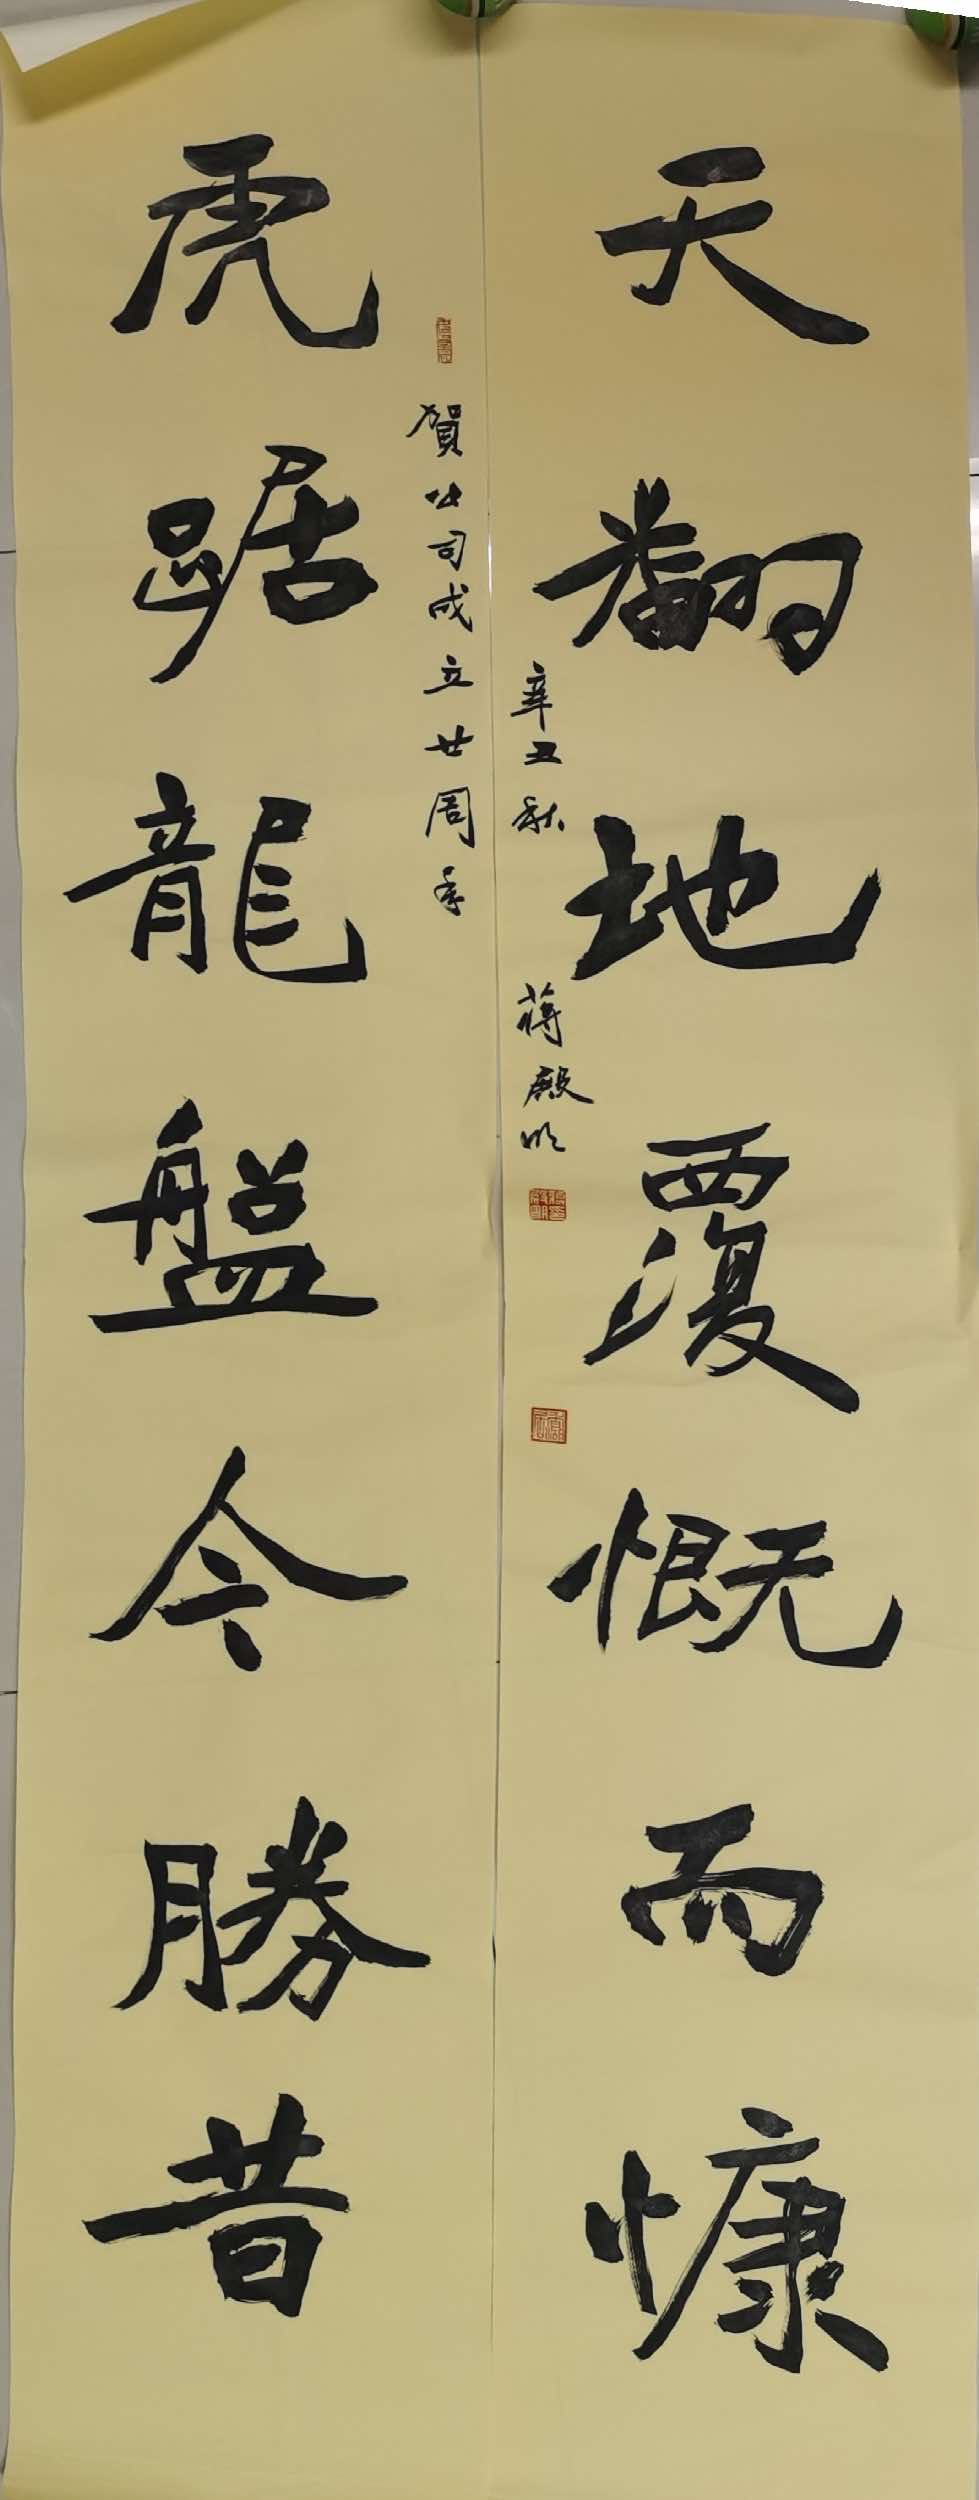 虎踞龍盤今勝昔
賀公司成立廿周年
天翻地覆慨而慷
辛丑秋
蔣殿明